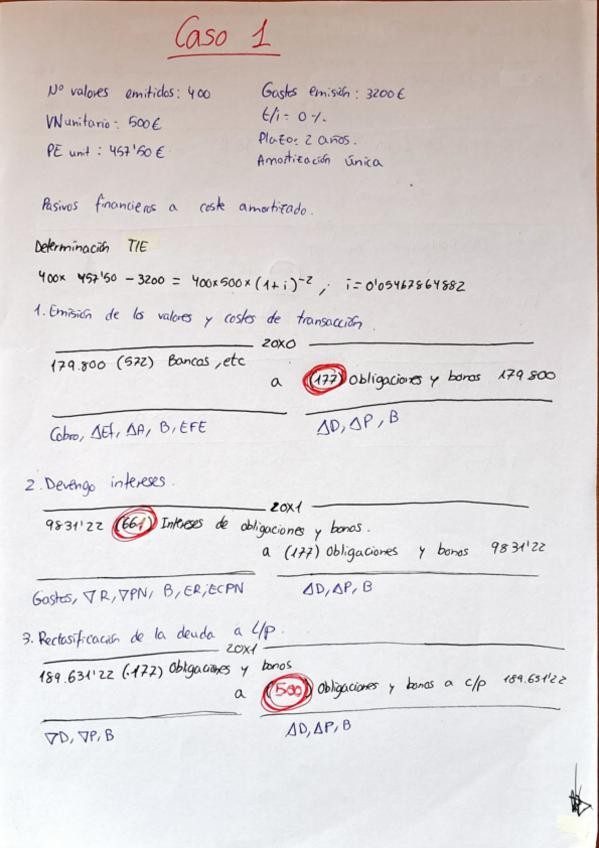 Caso 1
Nº valores emitidos: 400
Gastos emisión: 3200€
VN unitario: 500€
t/i = 0%.
PE unit: 457'50€
Plazo: 2 años.
Amortización única
Pasivos financieros a coste amortizado.
Determinación TIE
400x 457'50 - 3200 = 400x500x(1+i)⁻² ; i=0'05467864882
1. Emisión de los valores y costes de transacción.
20X0
179.800 (572) Bancos, etc
a (177) Obligaciones y bonos 179.800
Cobro, ΔEf, ΔA, B, EFE
ΔD, ΔP, B
2. Devengo intereses.
20X1
9831'22 (661) Intereses de obligaciones y bonos.
a (177) Obligaciones y bonos 9831'22
Gastos, ∇R, ∇PN, B, ER, ECPN
ΔD, ΔP, B
3. Reclasificación de la deuda a c/p.
20X1
189.631'22 (177) Obligaciones y bonos
a (500) Obligaciones y bonos a c/p 189.631'22
∇D, ∇P, B
ΔD, ΔP, B